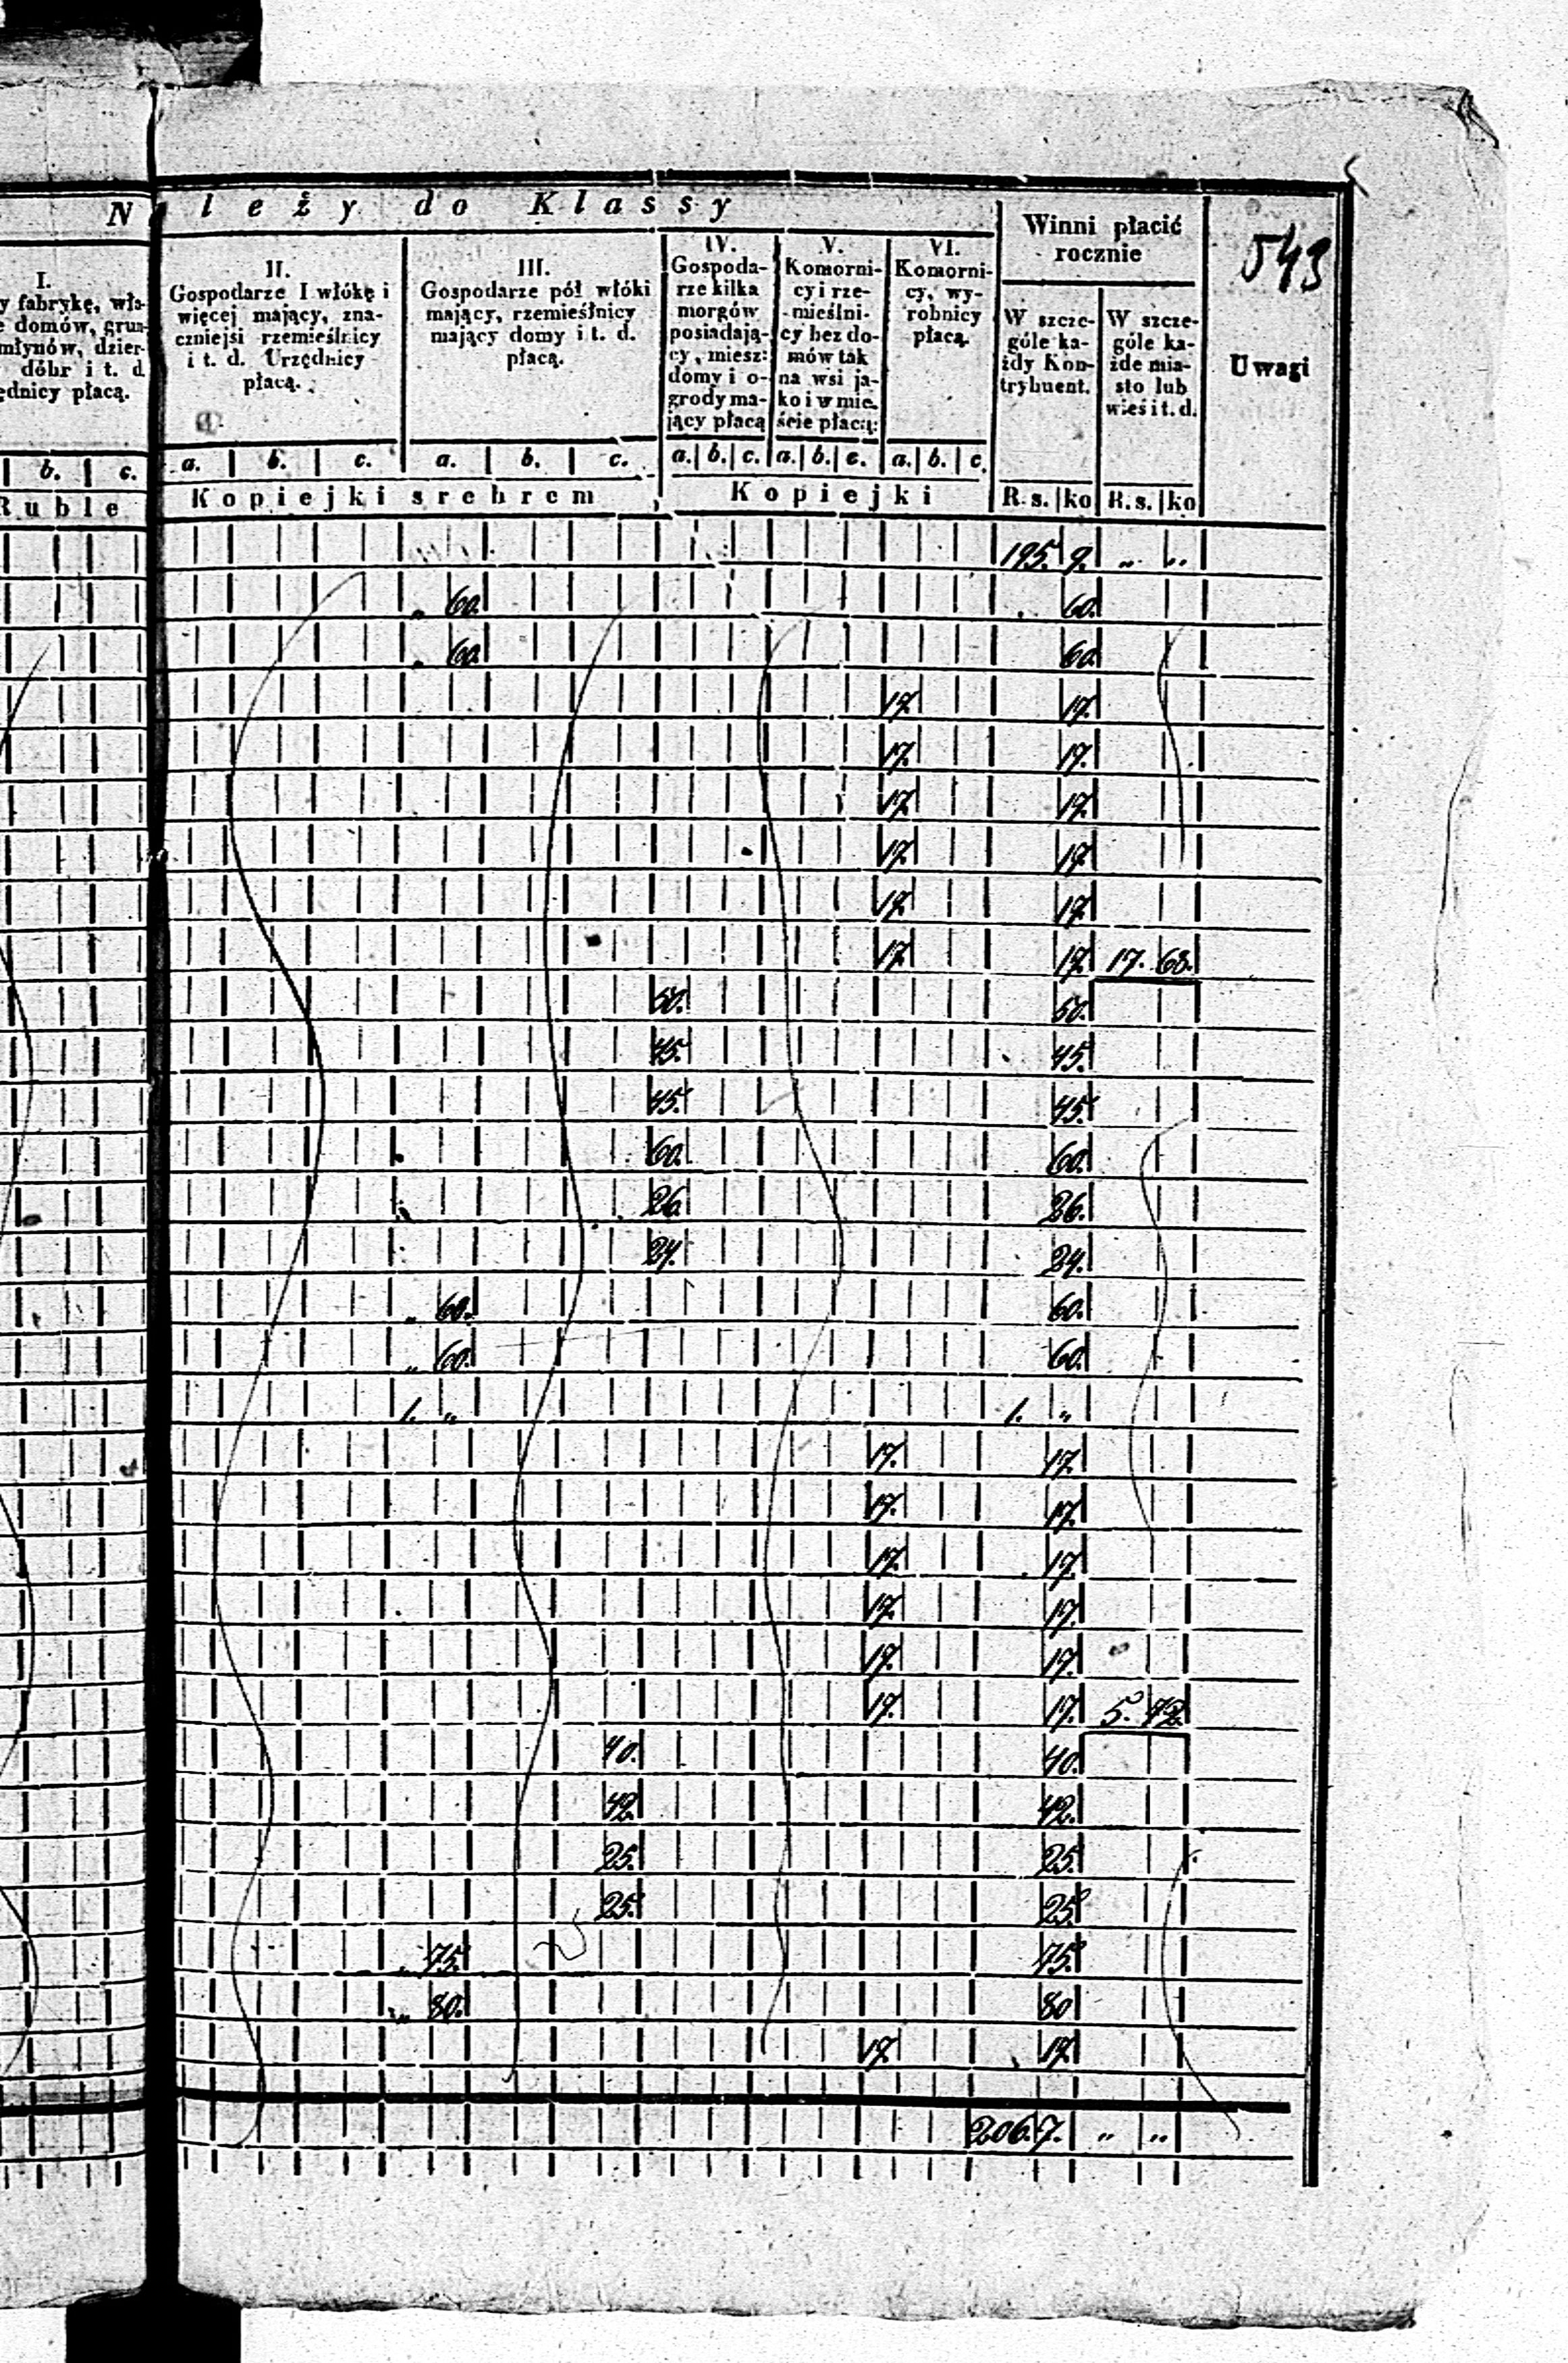 N leży do Klassy
Winni płacić
rocznie
543
I.
y fabrykę, wła-
e domów, grun-
młynów, dzier-
dóbr i t. d.
ędnicy płacą.
II.
Gospodarze I włókę i
więcej mający, zna-
czniejsi rzemieślnicy
i t. d. Urzędnicy
płacą.
III.
Gospodarze pół włóki
mający, rzemieślnicy
mający domy i t. d.
płacą.
IV.
Gospoda-
rze kilka
morgów
posiadają-
cy, miesz:
domy i o-
grody ma-
jący płacą
V.
Komorni-
cy i rze-
mieślni-
cy bez do-
mów tak
na wsi ja-
ko i w mie-
ście płacą:
VI.
Komorni-
cy, wy-
robnicy
płacą.
W szcze-
góle ka-
żdy Kon-
trybuent.
W szcze-
góle ka-
żde mia-
sto lub
wieś i t. d.
Uwagi
b. c. a. b. c. a. b. c. a. b. c. a. b. c. a. b. c.
Ruble Kopiejki srebrem Kopiejki R.s. ko R.s. ko
195. 9. „ „
„ 60. 60.
„ 60. 60.
17. 17.
17. 17.
17. 17.
17. 17.
17. 17.
17. 17. 17. 68.
50. 50.
45. 45.
45. 45.
60. 60.
26. 26.
24. 24.
„ 60. 60.
„ 60. 60.
1. „ 1. „
17. 17.
17. 17.
17. 17.
17. 17.
17. 17.
17. 17. 5. 72.
40. 40.
42. 42.
25. 25.
25. 25.
„ 75. 75.
„ 80. 80
17. 17.
206.7. „ „